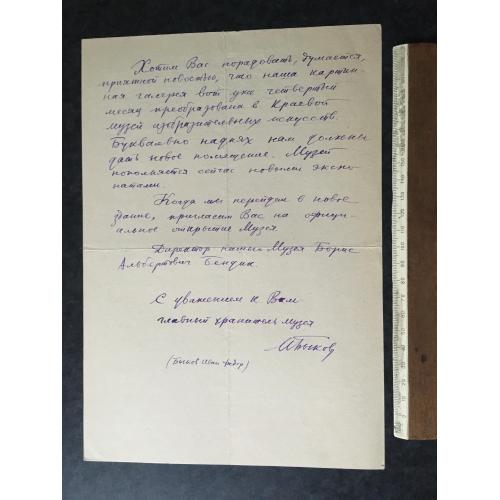 Хотим Вас порадовать, думается,
приятной новостью, что наша картин-
ная галерея вот уже четвертый
месяц преобразована в Краевой
музей изобразительных искусств.
Буквально на днях нам должны
дать новое помещение. Музей
пополняется сейчас новыми экспо-
натами.
Когда мы перейдем в новое
здание, пригласим Вас на офици-
альное открытие Музея.
Директор нашего Музея Борис
Альбертович Бендик.
С уважением к Вам
главный хранитель музея
Быков
(Быков Иван Федор)